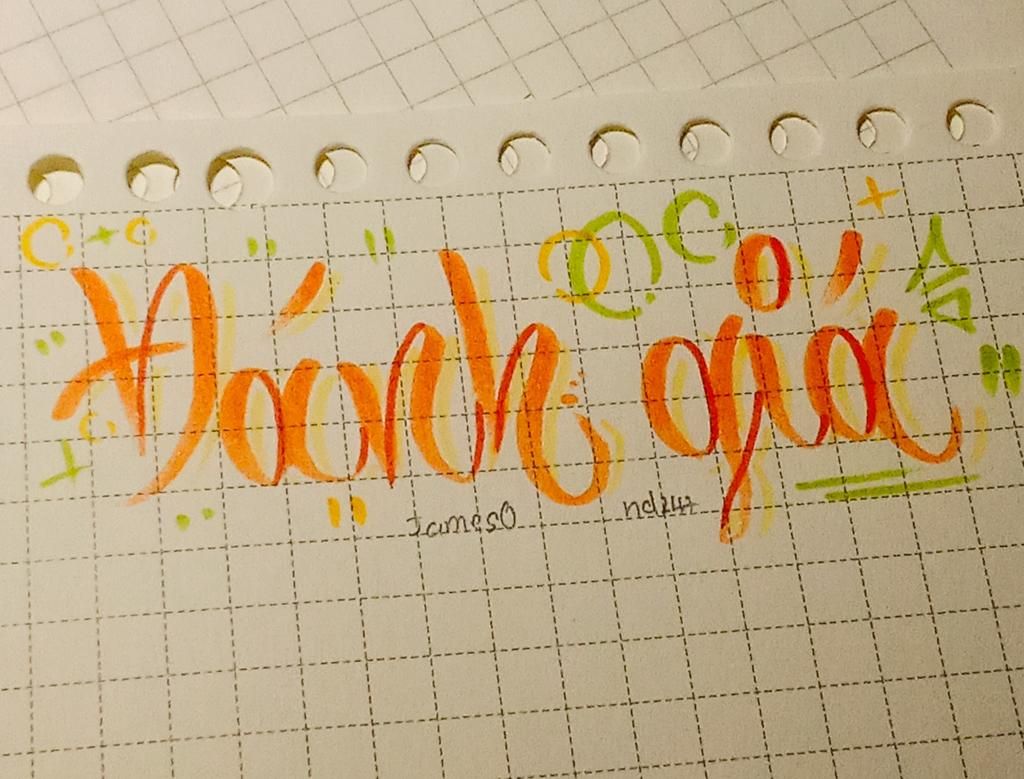 Đánh giá
James0 nd247